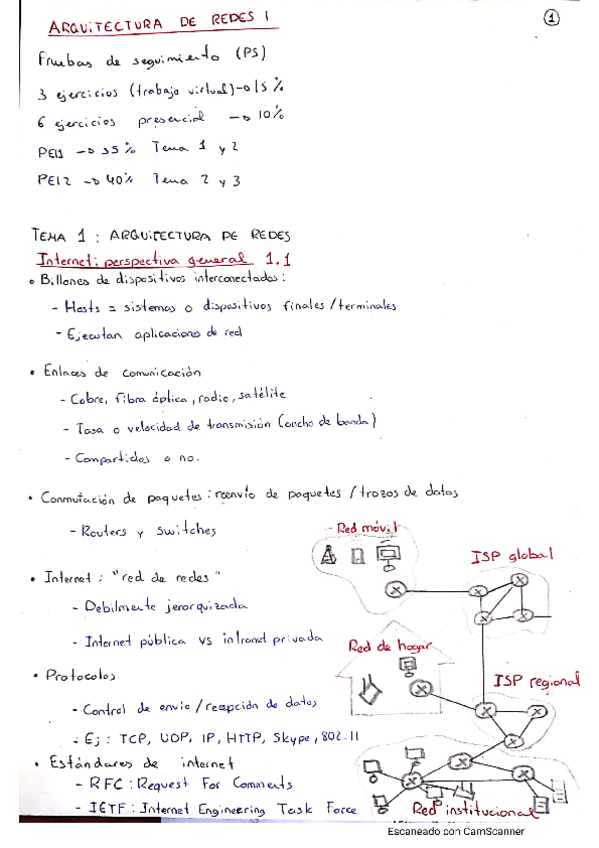 ARQUITECTURA DE REDES I
1
Pruebas de seguimiento (PS)
3 ejercicios (trabajo virtual) → 15 %
6 ejercicios presencial → 10%
PEI1 → 35% Tema 1 y 2
PEI2 → 40% Tema 2 y 3
TEMA 1 : ARQUITECTURA DE REDES
Internet: perspectiva general 1.1
• Billones de dispositivos interconectados:
- Hosts = sistemas o dispositivos finales/terminales
- Ejecutan aplicaciones de red
• Enlaces de comunicación
- Cobre, fibra óptica, radio, satélite
- Tasa o velocidad de transmisión (ancho de banda)
- Compartidos o no.
• Conmutación de paquetes: reenvío de paquetes / trozos de datos
- Routers y switches
• Internet: "red de redes"
- Debilmente jerarquizada
- Internet pública vs intranet privada
• Protocolos
- Control de envío / recepción de datos
- Ej: TCP, UDP, IP, HTTP, Skype, 802.11
• Estándares de internet
- RFC: Request For Comments
- IETF: Internet Engineering Task Force
Red móvil
ISP global
Red de hogar
ISP regional
Red institucional
Escaneado con CamScanner